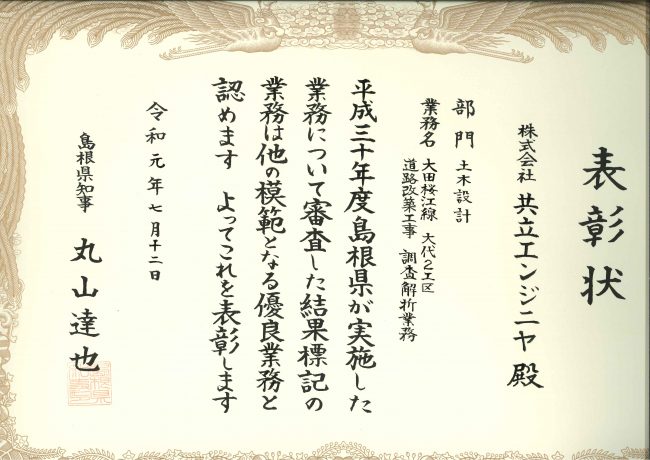 表彰状
株式会社 共立エンジニヤ殿
部門 土木設計
業務名 大田桜江線 大代2工区
道路改築工事 調査解析業務
平成三十年度島根県が実施した
業務について審査した結果標記の
業務は他の模範となる優良業務と
認めます よってこれを表彰します
令和元年七月十二日
島根県知事 丸山達也